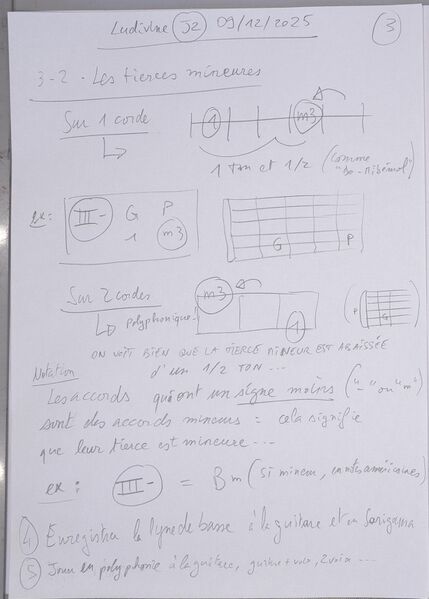 Ludivine J2 09/12/2025 3
3-2 - Les tierces mineures
Sur 1 corde
1 m3
1 ton et 1/2 (comme
"do-mibémol")
ex: III- G P
1 m3
G P
Sur 2 cordes
m3
Polyphonique
1
P G
ON VOIT BIEN QUE LA TIERCE MINEUR EST ABAISSÉE
d'un 1/2 TON ...
Notation
Les accords qui ont un signe moins ("-" ou "m")
sont des accords mineurs = cela signifie
que leur tierce est mineure ...
ex : III- = Bm (si mineur, en notes américaines)
4 Enregistrer la lyne de basse à la guitare et en Sarigama
5 Jouer en polyphonie à la guitare, guitare + voix, 2 voix ...